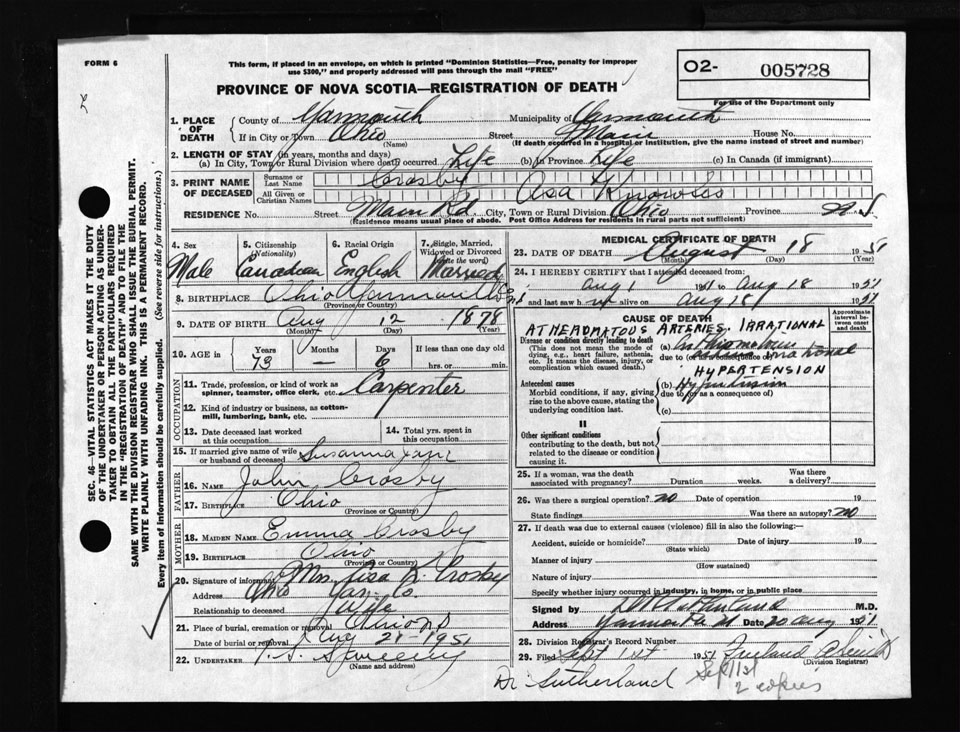 FORM 6
This form, if placed in an envelope, on which is printed "Dominion Statistics—Free, penalty for improper
use $300," and properly addressed will pass through the mail "FREE"
O2- 005728
For use of the Department only
PROVINCE OF NOVA SCOTIA—REGISTRATION OF DEATH
1. PLACE OF DEATH
County of Yarmouth Municipality of Yarmouth
If in City or Town Ohio (Name) Street Main House No.
(If death occurred in a hospital or institution, give the name instead of street and number)
2. LENGTH OF STAY (in years, months and days)
(a) In City, Town or Rural Division where death occurred Life (b) in Province Life (c) In Canada (if immigrant)
3. PRINT NAME OF DECEASED
Surname or Last Name Crosby
All Given or Christian Names Asa Knowles
RESIDENCE No. Street Main Rd. City, Town or Rural Division Ohio Province N S
(Residence means usual place of abode. Post Office Address for residents in rural parts not sufficient)
4. Sex Male
5. Citizenship (Nationality) Canadian
6. Racial Origin English
7. Single, Married, Widowed or Divorced (Write the word) Married
8. BIRTHPLACE Ohio Yarmouth Co
(Province or Country)
9. DATE OF BIRTH Aug 12 1878
(Month) (Day) (Year)
10. AGE in Years 73 Months — Days 6 If less than one day old hrs. or min.
OCCUPATION
11. Trade, profession, or kind of work as spinner, teamster, office clerk, etc. Carpenter
12. Kind of industry or business, as cotton-mill, lumbering, bank, etc.
13. Date deceased last worked at this occupation
14. Total yrs. spent in this occupation
15. If married give name of wife or husband of deceased Susanna Jane
FATHER
16. NAME John Crosby
17. BIRTHPLACE Ohio
(Province or Country)
MOTHER
18. MAIDEN NAME Emma Crosby
19. BIRTHPLACE Ohio
(Province or Country)
20. Signature of informant Mrs. Asa K. Crosby
Address Ohio Yar. Co.
Relationship to deceased Wife
21. Place of burial, cremation or removal Ohio N S
Date of burial or removal Aug 21-1951
22. UNDERTAKER V. S. Sweeny
(Name and address)
MEDICAL CERTIFICATE OF DEATH
23. DATE OF DEATH August 18 1951
(Month) (Day) (Year)
24. I HEREBY CERTIFY that I attended deceased from
Aug 1 1951 to Aug 18 1951
and last saw h m alive on Aug 18 1951
CAUSE OF DEATH
Approximate interval between onset and death
ATHEROMATOUS ARTERIES, IRRATIONAL
Disease or condition directly leading to death (a)
(This does not mean the mode of dying, e.g., heart failure, asthenia, etc. It means the disease, injury, or complication which caused death.)
due to (or as a consequence of)
HYPERTENSION
Antecedent causes (b) Hypertension
Morbid conditions, if any, giving rise to the above cause, stating the underlying condition last.
due to (or as a consequence of)
(c)
II
Other significant conditions
contributing to the death, but not related to the disease or condition causing it.
25. If a woman, was the death associated with pregnancy? Duration weeks. Was there a delivery?
26. Was there a surgical operation? no Date of operation 19
State findings Was there an autopsy? no
27. If death was due to external causes (violence) fill in also the following:—
Accident, suicide or homicide? Date of injury 19
(State which)
Manner of injury
(How sustained)
Nature of injury
Specify whether injury occurred in industry, in home, or in public place
Signed by M.D.
Address Yarmouth Date 20 Aug 1951
28. Division Registrar's Record Number
29. Filed Sept 1st 1951
(Division Registrar)
Dr Sutherland
Sep/1/51
2 copies
SEC. 46—VITAL STATISTICS ACT MAKES IT THE DUTY
OF THE UNDERTAKER OR PERSON ACTING AS UNDER-
TAKER TO OBTAIN ALL THE PARTICULARS REQUIRED
IN THE "REGISTRATION OF DEATH" AND TO FILE THE
SAME WITH THE DIVISION REGISTRAR WHO SHALL ISSUE THE BURIAL PERMIT.
WRITE PLAINLY WITH UNFADING INK. THIS IS A PERMANENT RECORD.
Every item of information should be carefully supplied. (See reverse side for instructions.)